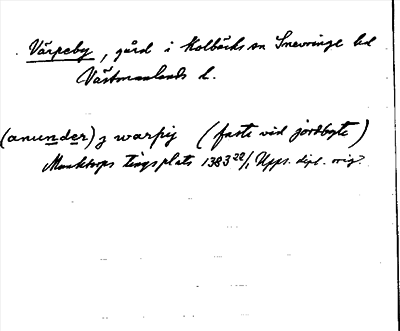 Värpeby, gård i Kolbäcks sn Snevringe hd
Västmanlands l.
(anunder) j warpij (faste vid jordbyte)
Munktorps tingsplats 1383 22/1 Upps. dipl. orig.